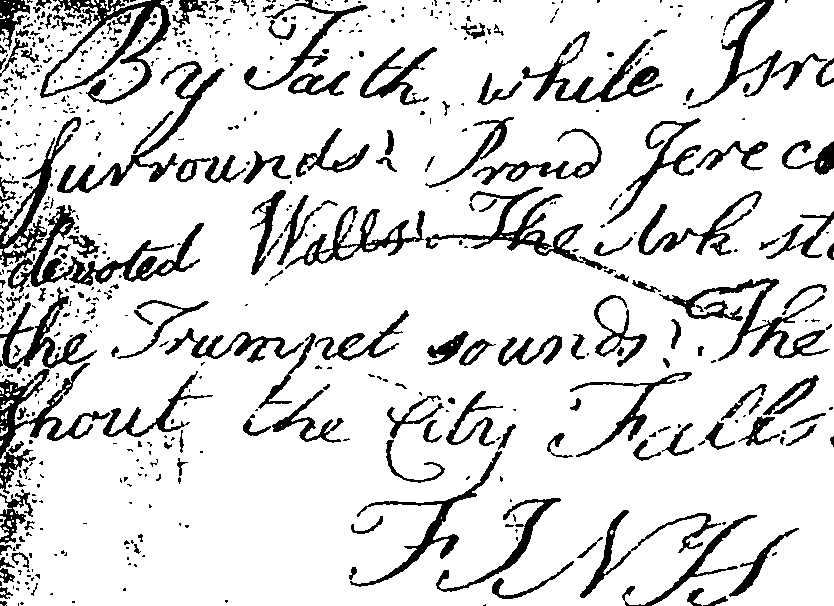 By Faith, while Isra
surrounds! Proud Jereco
devoted Walls! The Ark sto
the Trumpet sounds! The
shout the City Falls.
FINH